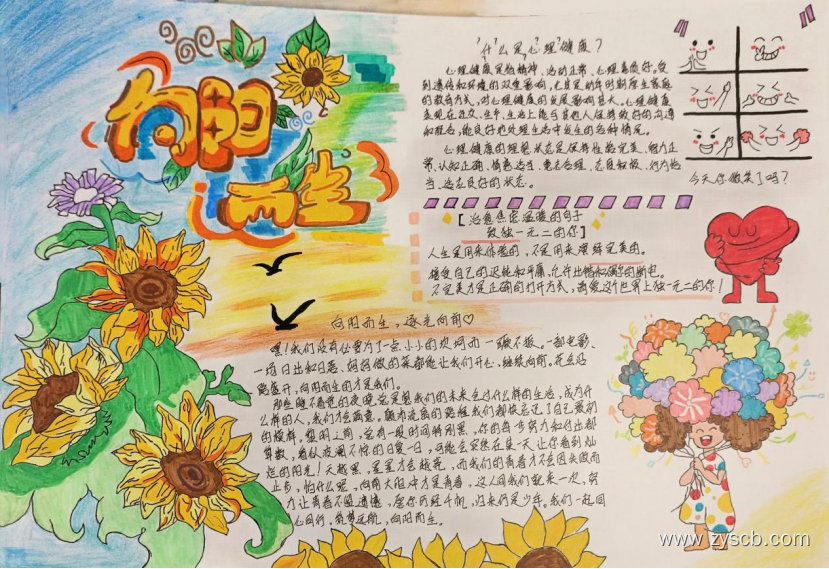 向阳而生
什么是心理健康？
心理健康是指精神、活动正常、心理素质好。受
到遗传和环境的双重影响，尤其是幼年时期原生家庭
的教育方式，对心理健康的发展影响甚大。心理健康
表现在社交、生产、生活上能与其他人保持较好的沟通
和配合，能良好地处理生活中发生的各种情况。
心理健康的理想状态是保持性格完美、智力正
常、认知正确、情感适当、意志合理、态度积极、行为恰
当、适应良好的状态。
今天你微笑了吗？
【治愈焦虑温暖的句子
致独一无二的你】
人生是用来体验的，不是用来演绎完美的。
接受自己的迟钝和平庸，允许出错和偶尔的断电。
不完美才是正确的打开方式，再爱这个世界上独一无二的你！
向阳而生，逐光向前♡
嘿！我们没有必要为了一点小小的坎坷而一蹶不振。一部电影、
一场日出和日落、妈妈做的菜都能让我们开心，继续向前。花会沿
路盛开，向阳而生的才是我们。
那些睡不着觉的夜晚总是想我们的未来会过什么样的生活，成为什
么样的人，我们才会满意。
黎明之前，总有一段时间特别黑，你的每步努力和付出都
算数，看似波澜不惊的日复一日，可能会突然在某一天让你看到灿
烂的阳光！天越黑，星星才会越亮，而我们的青春才不会因失败而
止步，怕什么呢，向南大胆冲才是青春，这人间我们就来一次，努
力让青春不留遗憾，愿你历经千帆，归来仍是少年。我们一起同
心同行，筑梦远航，向阳而生。
www.zyscb.com